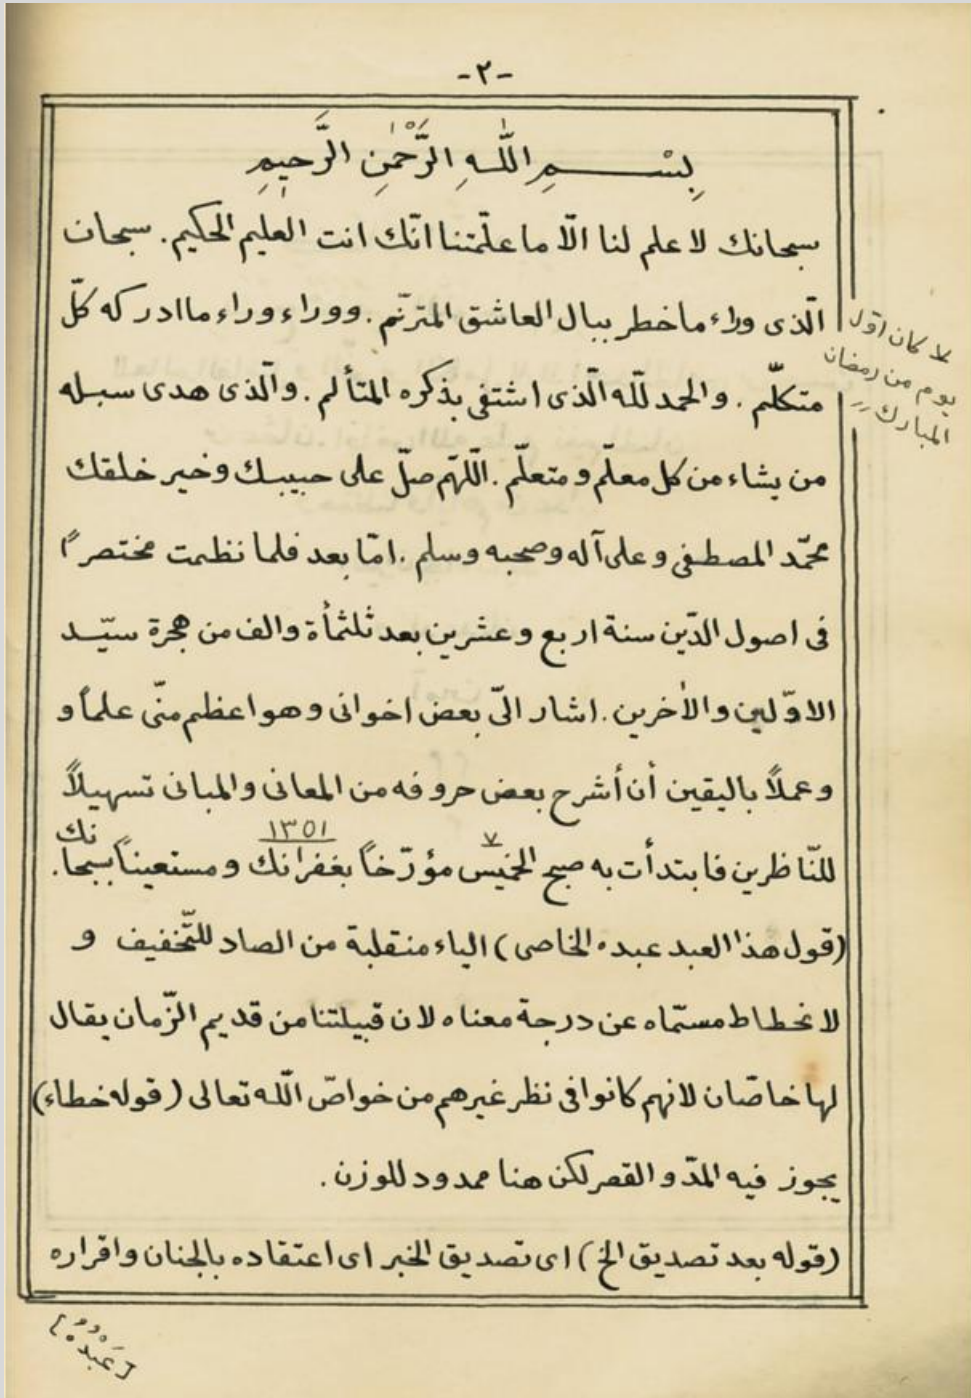 -٢-
بِسْمِ اللّٰهِ الرَّحْمٰنِ الرَّحِيمِ
سبحانك لا علم لنا الّا ما علّمتنا انّك انت العليم الحكيم. سبحان
الّذى وراء ما خطر ببال العاشق المترنّم. ووراء وراء ما ادركه كلّ
متكلّم. والحمد للّه الّذى اشتفى بذكره المتألم. والّذى هدى سبله
من يشاء من كل معلّم و متعلّم. اللّهمّ صلّ على حبيبك وخير خلقك
محمّد المصطفى وعلى آله وصحبه وسلم. امّا بعد فلما نظمت مختصراً
فى اصول الدّين سنة اربع وعشرين بعد ثلثمأة والف من هجرة سيّد
الاوّلين والأخرين. اشار الىّ بعض اخوانى وهو اعظم منّى علماً و
وعملاً باليقين أن أشرح بعض حروفه من المعانى والمبانى تسهيلاً
١٣٥١
للنّاظرين فابتدأت به صبح الخميس٧ مؤرّخاً بغفرانك ومستعيناً بسبحانك.
(قول هذا العبد عبده الخاصى) الياء منقلبة من الصاد للتّخفيف و
لانحطاط مسمّاه عن درجة معناه لان قبيلتنا من قديم الزّمان يقال
لها خاصّان لانهم كانوا فى نظر غيرهم من خواصّ اللّه تعالى (قوله خطاء)
يجوز فيه المدّ و القصر لكن هنا ممدود للوزن.
(قوله بعد تصديق الخ) اى تصديق الخبر اى اعتقاده بالجنان واقراره
٧ كان اوّل
يوم من رمضان
المبارك
[عَبْدُهُ]